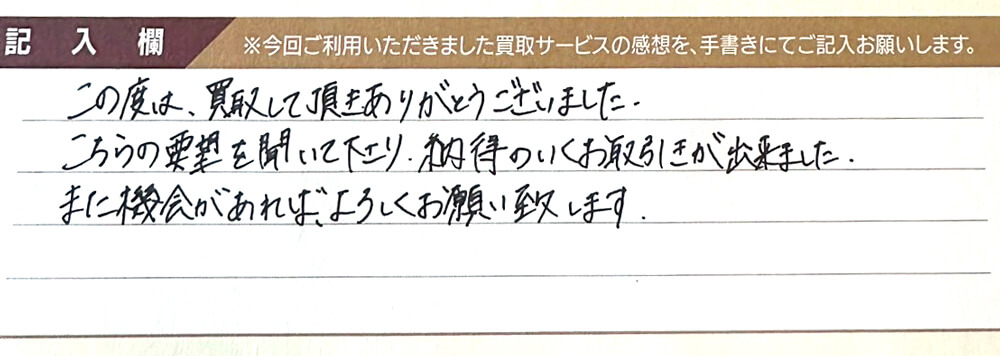 記入欄 ※今回ご利用いただきました買取サービスの感想を、手書きにてご記入お願いします。
この度は、買取して頂きありがとうございました.
こちらの要望を聞いて下さり、納得のいくお取引きが出来ました.
また機会があれば、よろしくお願い致します.